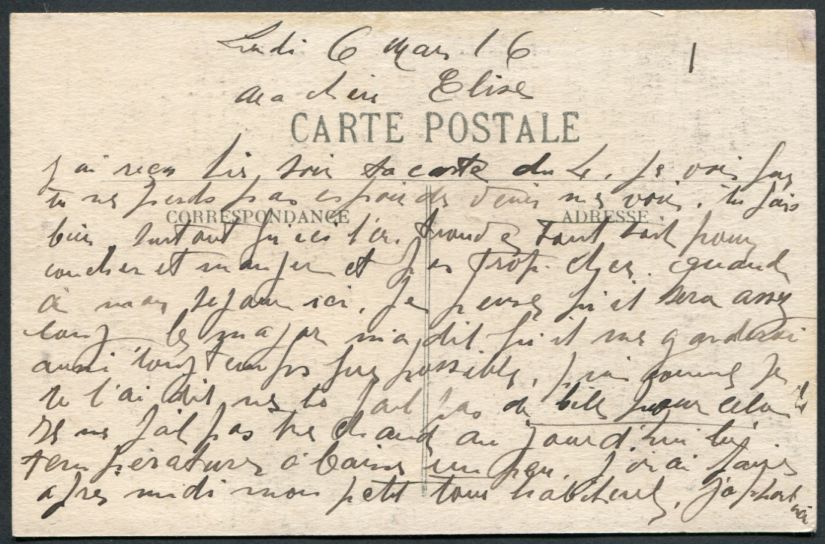 Lundi 6 Mars 16
1
Ma chère Elise
CARTE POSTALE
j'ai reçu hier soir ta carte du 4. je vois que
tu ne perds pas espoir de venir me voir. tu fais
CORRESPONDANCE ADRESSE
bien surtout qu'ici l'on trouve tout soit pour
coucher et manger et pas trop cher. quand
à mon sejour ici, je pense qu'il sera assez
long le major m'a dit qu'il me garderai
aussi longtemps que possible, puis comme je
te l'ai dit ne te fait pas de bile pour cela
Il ne fait pas tres chaud aujourd'hui la
temperature a baissé un peu. j'irai faire
apres midi mon petit tour habituel,